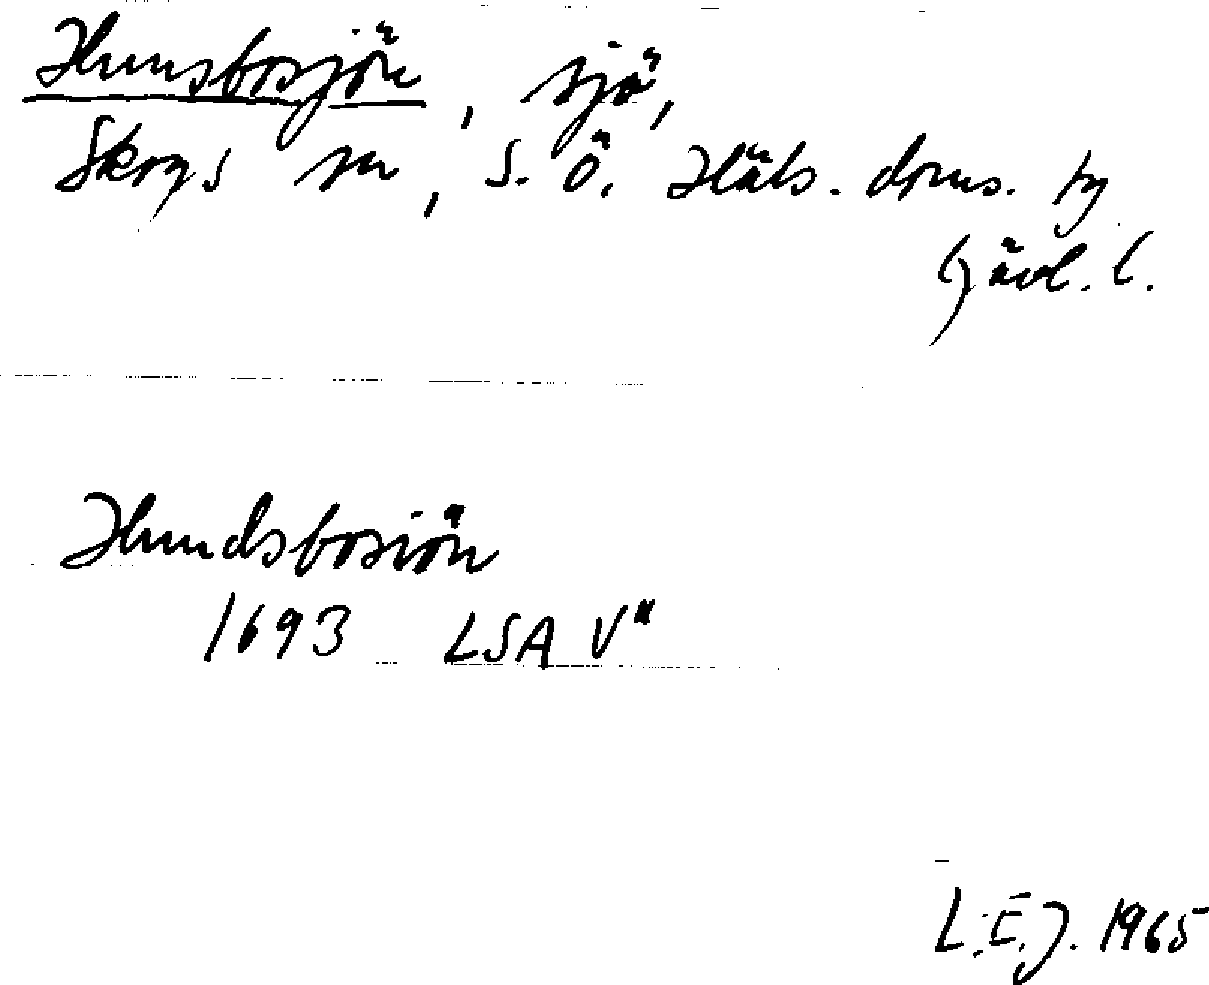 Hunsbosjön, sjö,
Skogs sn, S. Ö. Häls. doms. tg
Gävl. l.
Hundsbosiön
1693 LSA V"
L.E.J. 1965